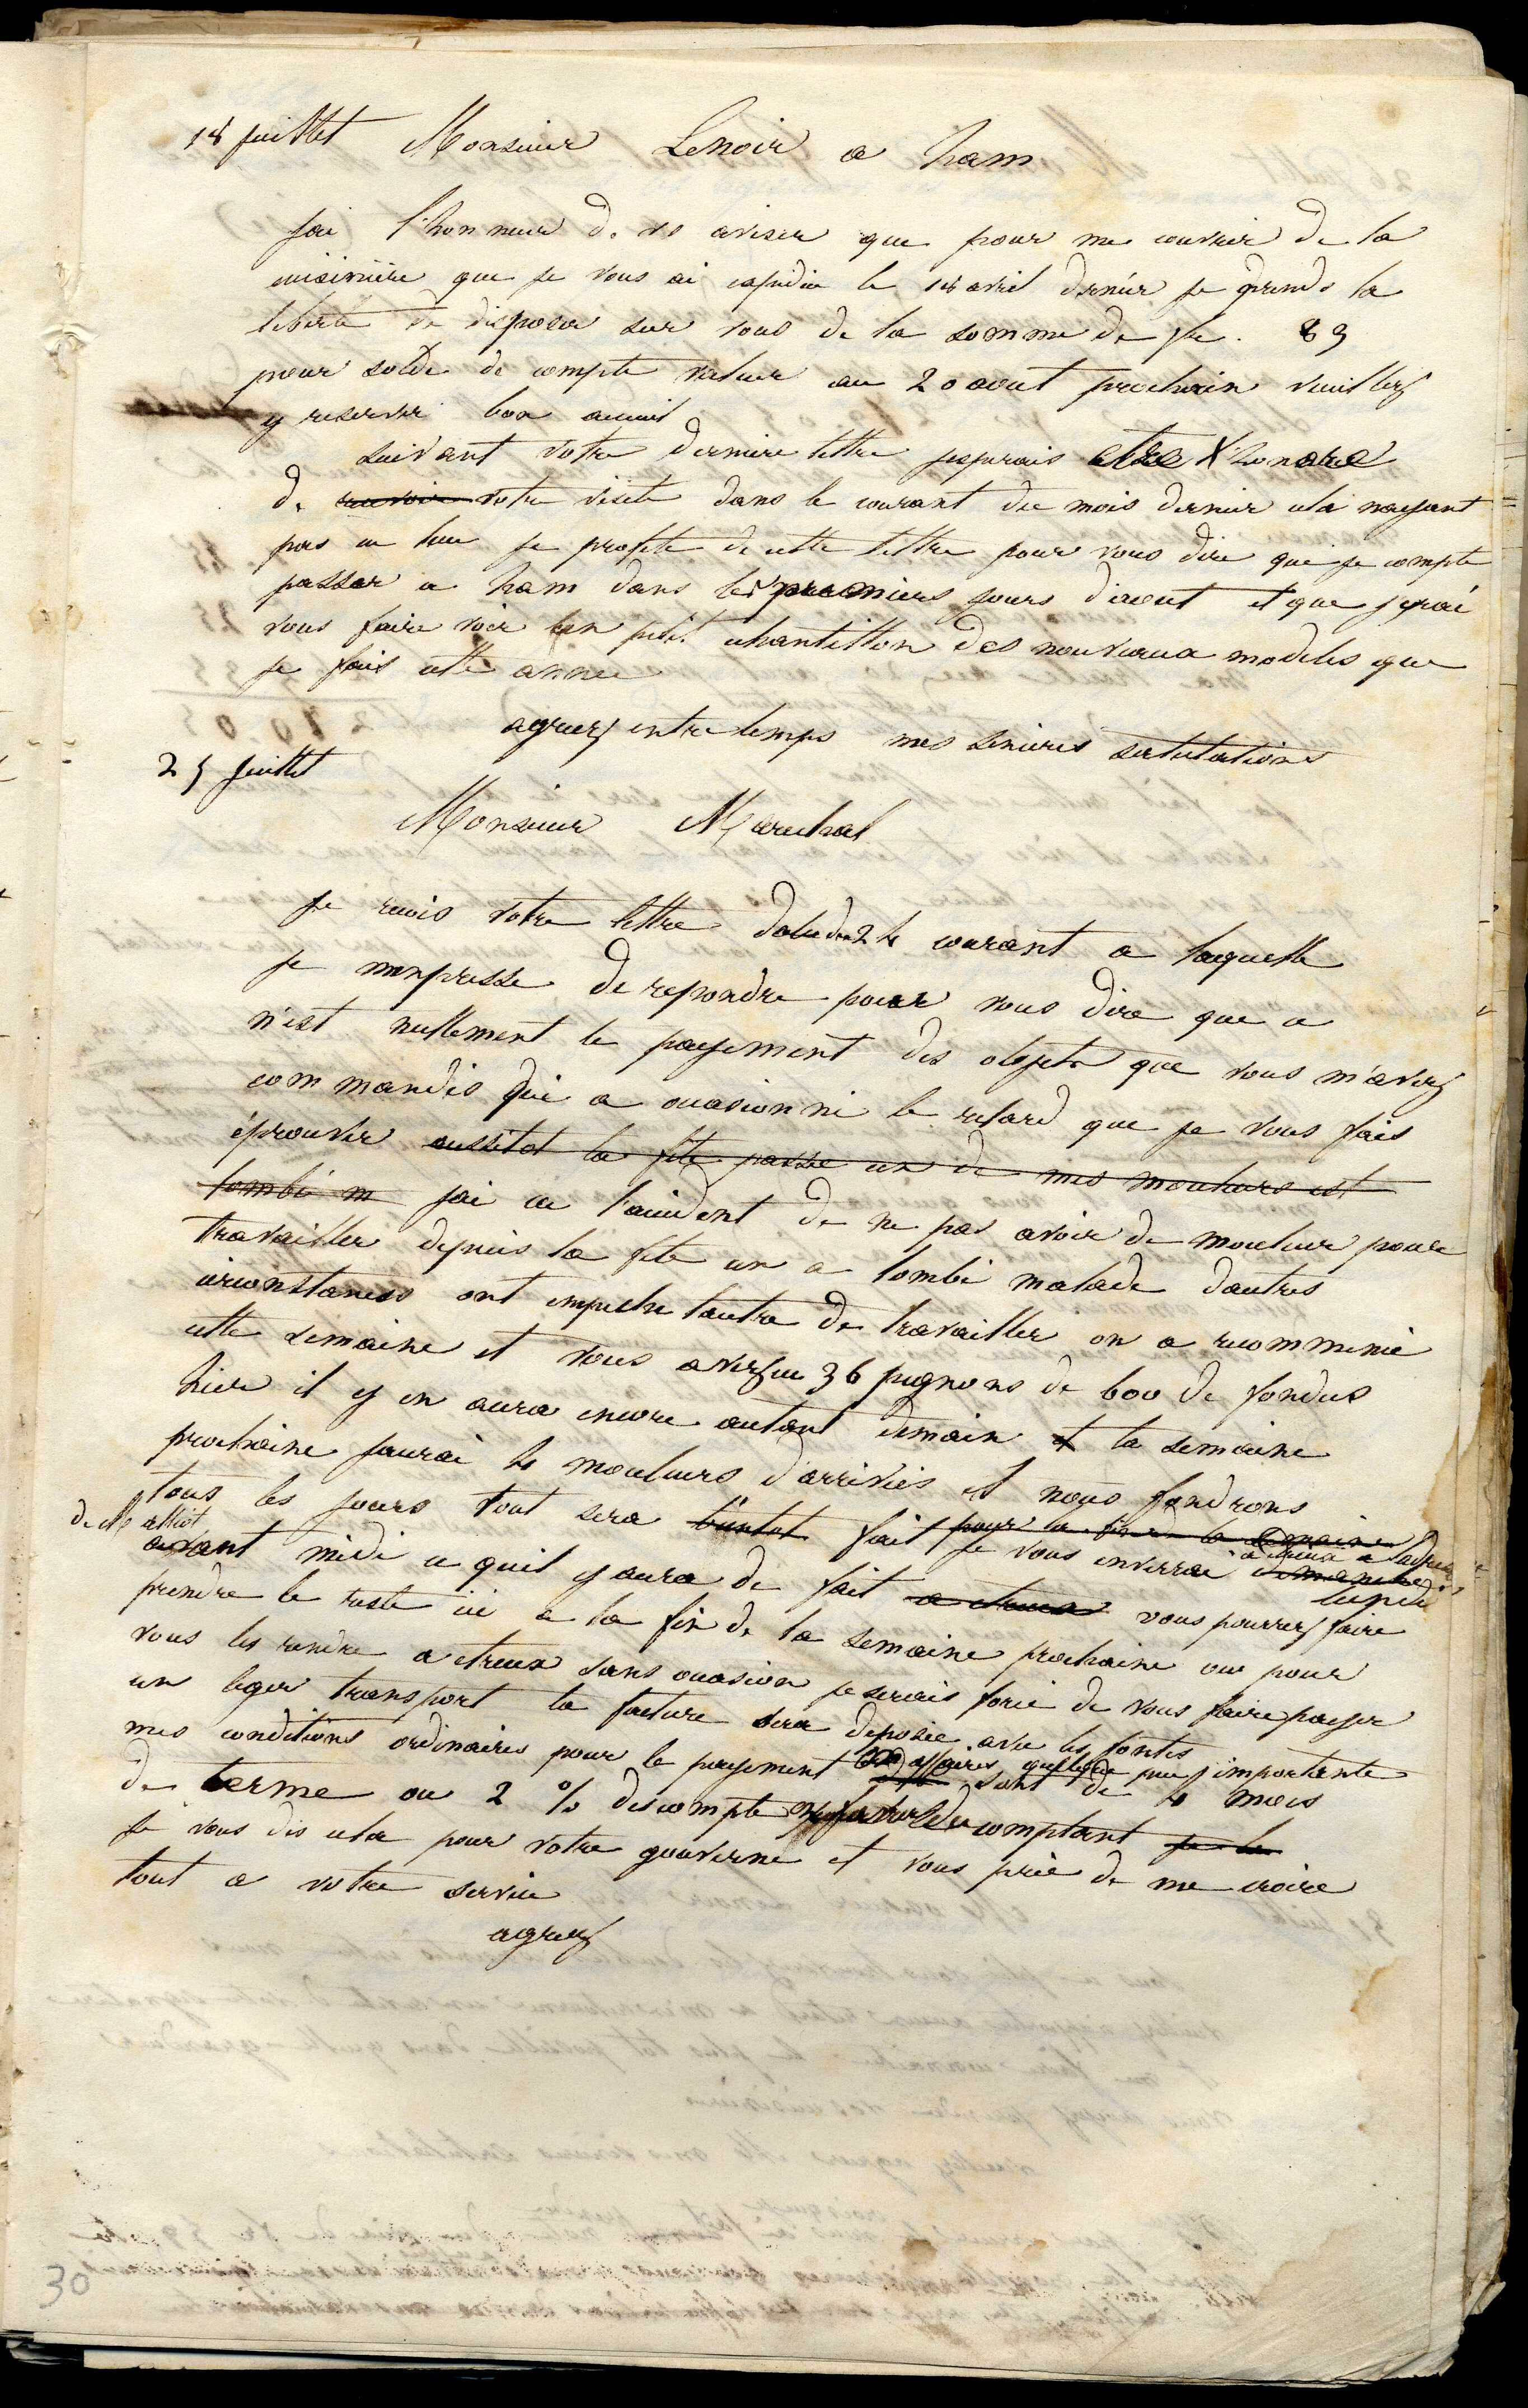 18 juillet Monsieur Lenoir a ham
jai l'honneur de vs aviser que pour me couvrir de la
cuisinière que je vous ai expédiée le 18 avril dernier je prends la
liberté de disposer sur vous de la somme de fr. 83
pour solde de compte valeur au 20 aout prochain veuillez
y reserver bon accueil
suivant votre derniere lettre jesperais etre honoré
de recevoir votre visite dans le courant du mois dernier cela nayant
pas eu lieu je profite de cette lettre pour vous dire que je compte
passer a ham dans les premiers jours daout et que jirai
vous faire voir un petit echantillon des nouveaux modeles que
je fais cette année
agreez entretemps mes sincères salutations
25 juillet
Monsieur Marechal
Je reçois votre lettre datée du 24 courant a laquelle
je mempresse de repondre pour vous dire que ce
n'est nullement le payement des objets que vous m'avez
commandés qui a occasionné le retard que je vous fais
éprouver aussitot la fête passée un de mes mouleurs est
tombé m jai eu l'accident de ne pas avoir de mouleur pour
travailler depuis la fete un a tombé malade dautres
circonstances ont empeché lautre de travailler on a recommencé
cette semaine et vous avez eu 36 pignons de boo de fondus
hier il y en aura encore autant demain et la semaine
prochaine jaurai 4 mouleurs d'arrivés et nous fondrons
tous les jours tout sera bientot fait pour la fin de la semaine
je vous enverrai a etreux a ladresse
de Mr alliot
avant midi ce quil y aura de fait a etreux lundi vous pourrez faire
prendre le reste ici a la fin de la semaine prochaine car pour
vous les rendre a etreux sans occasion je serais forcé de vous faire payer
un leger transport la facture sera deposée avec les fontes
mes conditions ordinaires pour le payement des affaires quelque peu importante
sont de 4 mois
de terme ou 2 % descompte au comptant je le
je vous dis cela pour votre gouverne et vous prie de me croire
tout a votre service
agreez
30